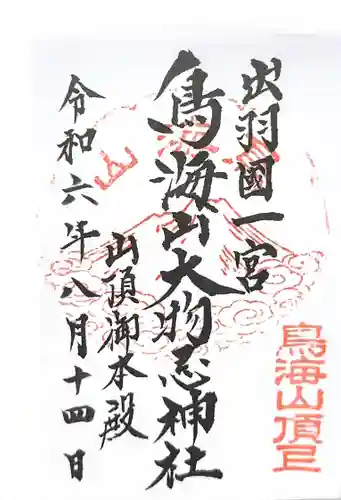 出羽國一宮
鳥海山大物忌神社
山頂御本殿
令和六年八月十四日
鳥海山頂